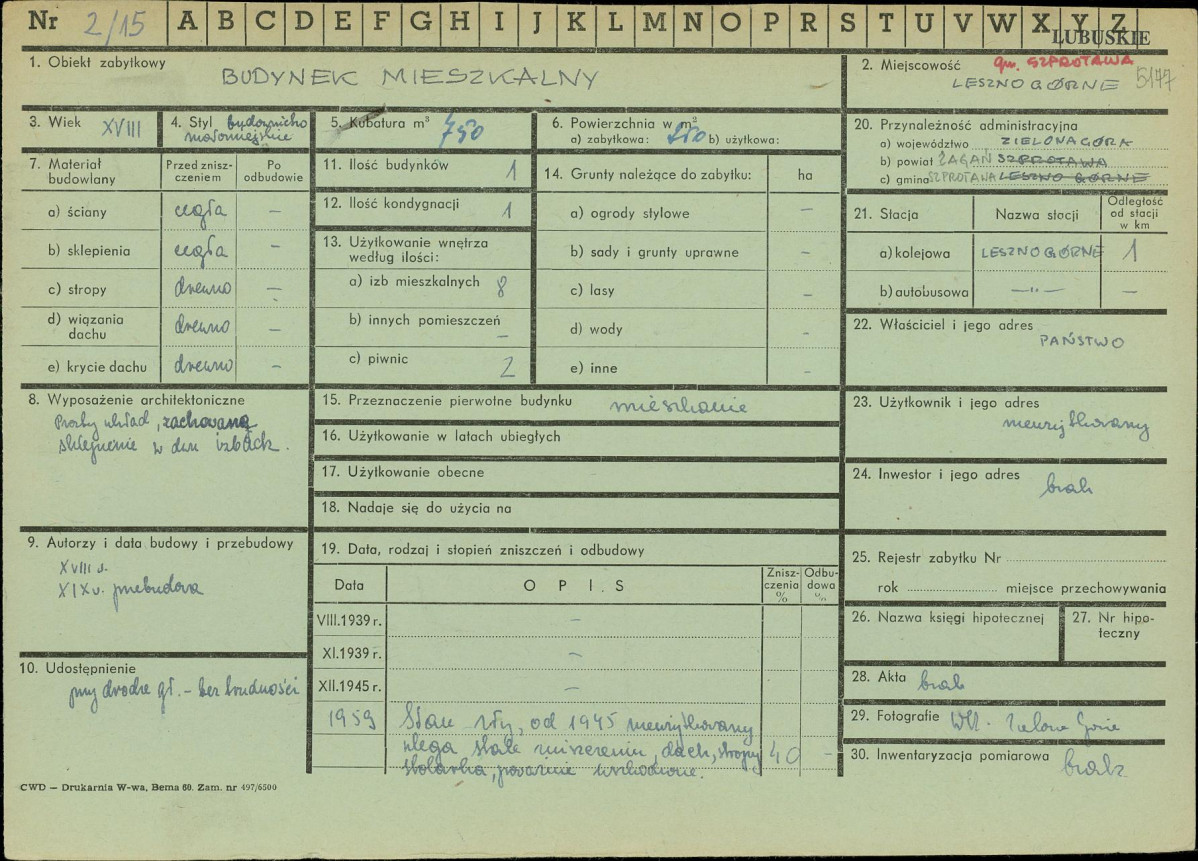 Nr 2/15 A B C D E F G H I J K L M N O P R S T U V W X Y Z
LUBUSKIE
1. Obiekt zabytkowy
BUDYNEK MIESZKALNY
2. Miejscowość gm. SZPROTAWA
LESZNO GÓRNE 5177
3. Wiek XVIII
4. Styl budownictwo
małomiejskie
5. Kubatura m³ 750
6. Powierzchnia w m²
a) zabytkowa: 250 b) użytkowa:
7. Materiał budowlany
Przed zniszczeniem
Po odbudowie
a) ściany cegła –
b) sklepienia cegła –
c) stropy drewno –
d) wiązania dachu drewno –
e) krycie dachu drewno –
8. Wyposażenie architektoniczne
Prosty układ, zachowane
sklepienie w dwu izbach.
9. Autorzy i data budowy i przebudowy
XVIII w.
XIX w. przebudowa
10. Udostępnienie
przy drodze gł. – bez trudności
11. Ilość budynków 1
12. Ilość kondygnacji 1
13. Użytkowanie wnętrza
według ilości:
a) izb mieszkalnych 8
b) innych pomieszczeń –
c) piwnic 2
14. Grunty należące do zabytku: ha
a) ogrody stylowe –
b) sady i grunty uprawne –
c) lasy –
d) wody –
e) inne –
15. Przeznaczenie pierwotne budynku mieszkanie
16. Użytkowanie w latach ubiegłych
17. Użytkowanie obecne
18. Nadaje się do użycia na
19. Data, rodzaj i stopień zniszczeń i odbudowy
Data OPIS Zniszczenia % Odbudowa %
VIII.1939 r. –
XI.1939 r. –
XII.1945 r. –
1959 Stan zły, od 1945 nieużytkowany
ulega stałe niszczeniu, dach, stropy 40 –
stolarka, poważnie uszkodzone.
20. Przynależność administracyjna
a) województwo ZIELONA GÓRA
b) powiat ŻAGAŃ SZPROTAWA
c) gmina SZPROTAWA LESZNO GÓRNE
21. Stacja Nazwa stacji Odległość od stacji w km
a) kolejowa LESZNO GÓRNE 1
b) autobusowa –"– –
22. Właściciel i jego adres
PAŃSTWO
23. Użytkownik i jego adres
nieużytkowany
24. Inwestor i jego adres
brak
25. Rejestr zabytku Nr
rok miejsce przechowywania
26. Nazwa księgi hipotecznej
27. Nr hipoteczny
28. Akta brak
29. Fotografie WKZ. Zielona Góra
30. Inwentaryzacja pomiarowa brak
CWD — Drukarnia W-wa, Bema 60. Zam. nr 497/6500